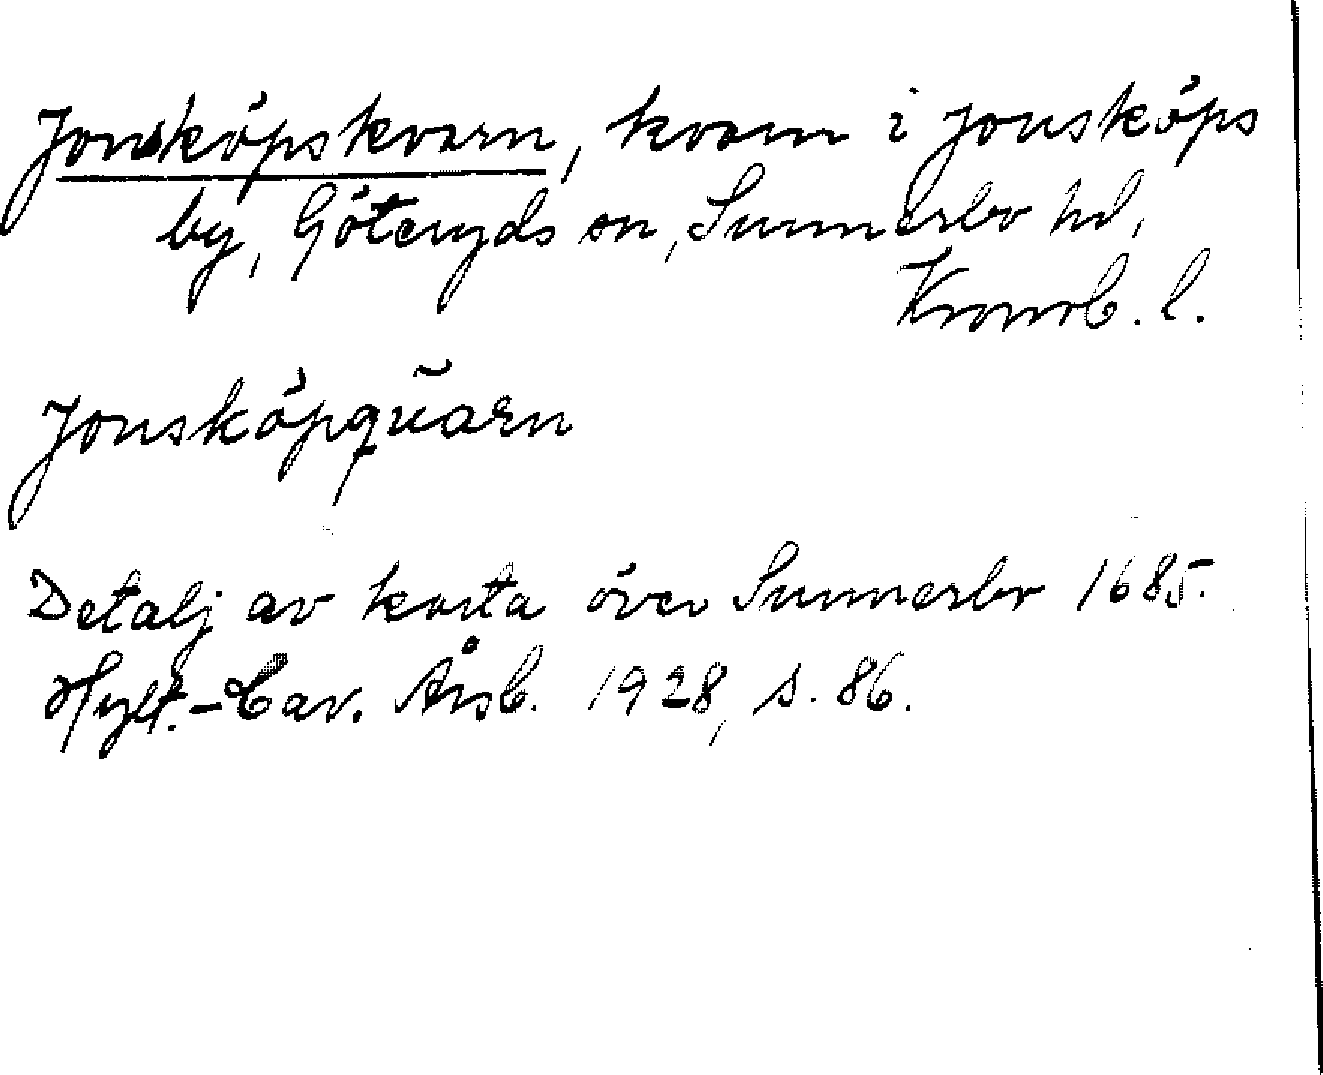 Jonsköpskvarn, kvarn i Jonsköps
by, Göteryds sn, Sunnerbo hd,
Kronob. l.
Jonsköpqŭarn
Detalj av karta över Sunnerbo 1685.
Hylt.-Cav. Årsb. 1928, s. 86.